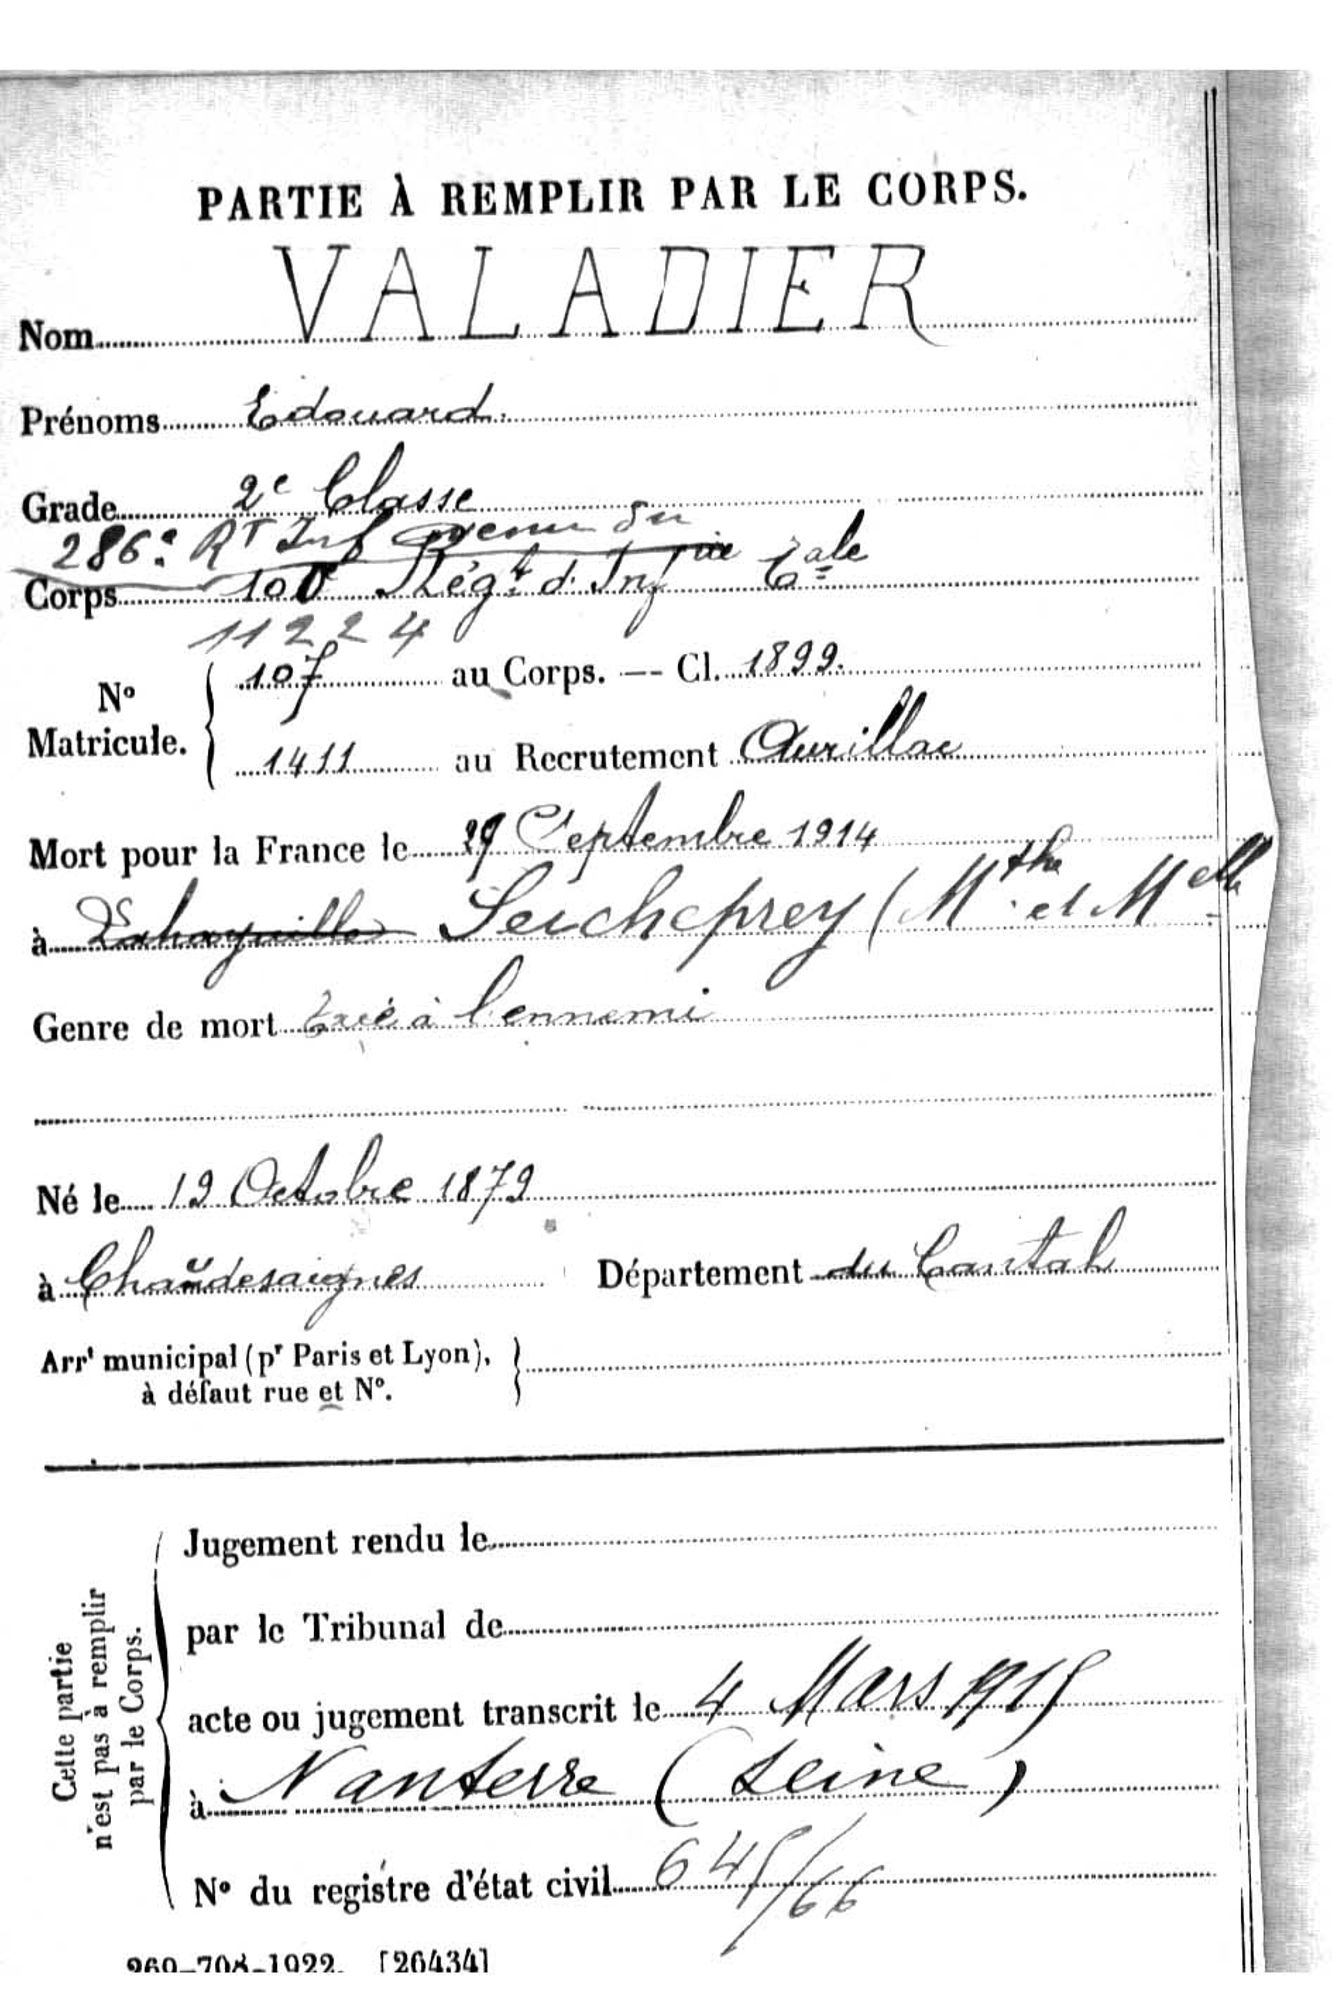 PARTIE À REMPLIR PAR LE CORPS.
Nom VALADIER
Prénoms Edouard.
Grade 2e Classe
286e RT Inf venu du
Corps 100 Régt d'Infie Tale
11224
N° Matricule. { 107 au Corps. — Cl. 1899.
1411 au Recrutement Aurillac
Mort pour la France le 29 Septembre 1914
à Lahayville Seicheprey (Mthe et Melle
Genre de mort tué à l'ennemi
Né le 19 Octobre 1879
à Chaudesaignes Département du Cantal
Arrt municipal (pr Paris et Lyon), }
à défaut rue et N°.
Cette partie
n'est pas à remplir
par le Corps.
Jugement rendu le
par le Tribunal de
acte ou jugement transcrit le 4 Mars 1915
à Nanterre (Seine)
N° du registre d'état civil 645/66
960-708-1922. [26434]